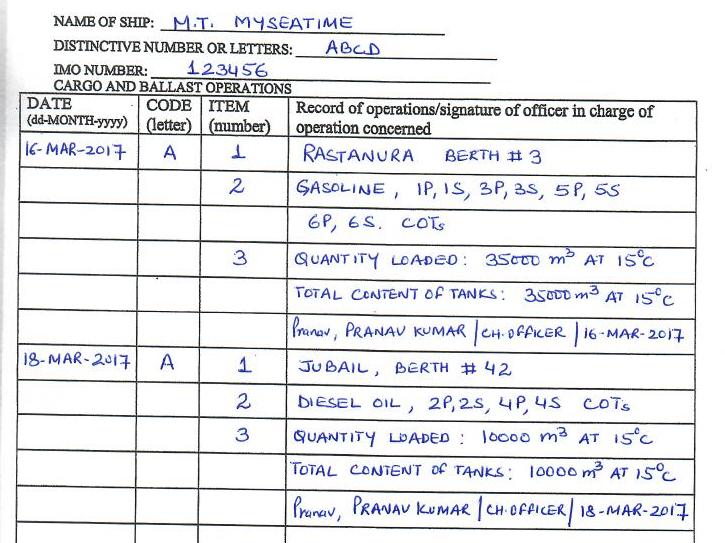 NAME OF SHIP: M.T. MYSEATIME
DISTINCTIVE NUMBER OR LETTERS: ABCD
IMO NUMBER: 123456
CARGO AND BALLAST OPERATIONS
DATE CODE ITEM Record of operations/signature of officer in charge of
(dd-MONTH-yyyy) (letter) (number) operation concerned
16-MAR-2017 A 1 RASTANURA BERTH # 3
2 GASOLINE, 1P, 1S, 3P, 3S, 5P, 5S
6P, 6S. COTs
3 QUANTITY LOADED: 35000 m³ AT 15°C
TOTAL CONTENT OF TANKS: 35000 m³ AT 15°C
Pranav, PRANAV KUMAR | CH.OFFICER | 16-MAR-2017
18-MAR-2017 A 1 JUBAIL, BERTH # 42
2 DIESEL OIL, 2P, 2S, 4P, 4S COTs
3 QUANTITY LOADED: 10000 m³ AT 15°C
TOTAL CONTENT OF TANKS: 10000 m³ AT 15°C
Pranav, PRANAV KUMAR | CH.OFFICER | 18-MAR-2017